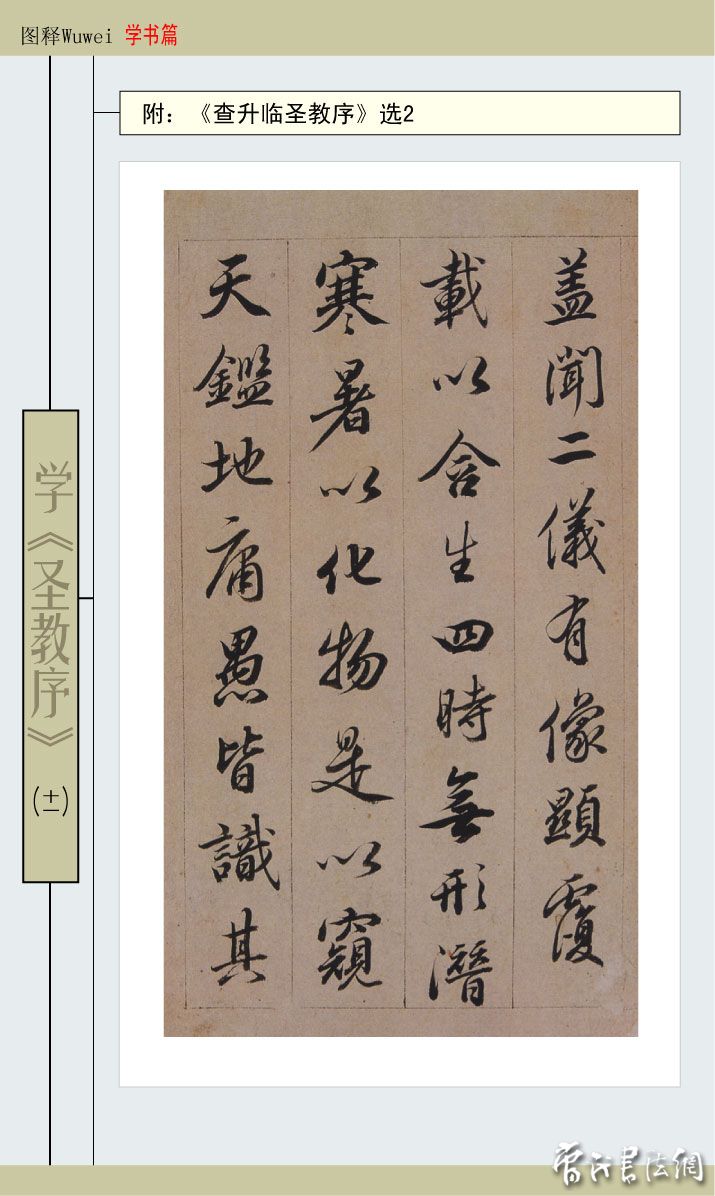 图释Wuwei 学书篇
附：《查升临圣教序》选2
盖聞二儀有像顯覆
載以含生四時無形潛
寒暑以化物是以窺
天鑑地庸愚皆識其
学《圣教序》
(十二)